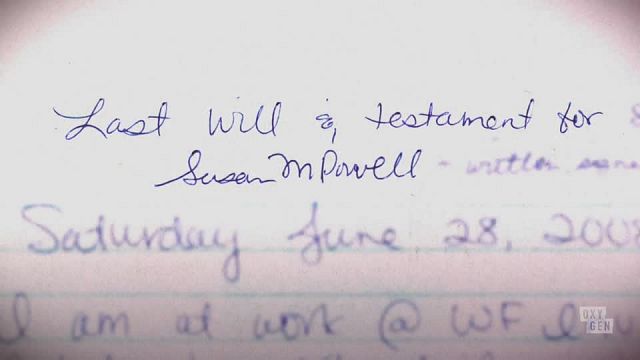 Last Will & testament for
Susan M Powell - written
Saturday June 28, 2008
I am at work @ WF
OXY
GEN